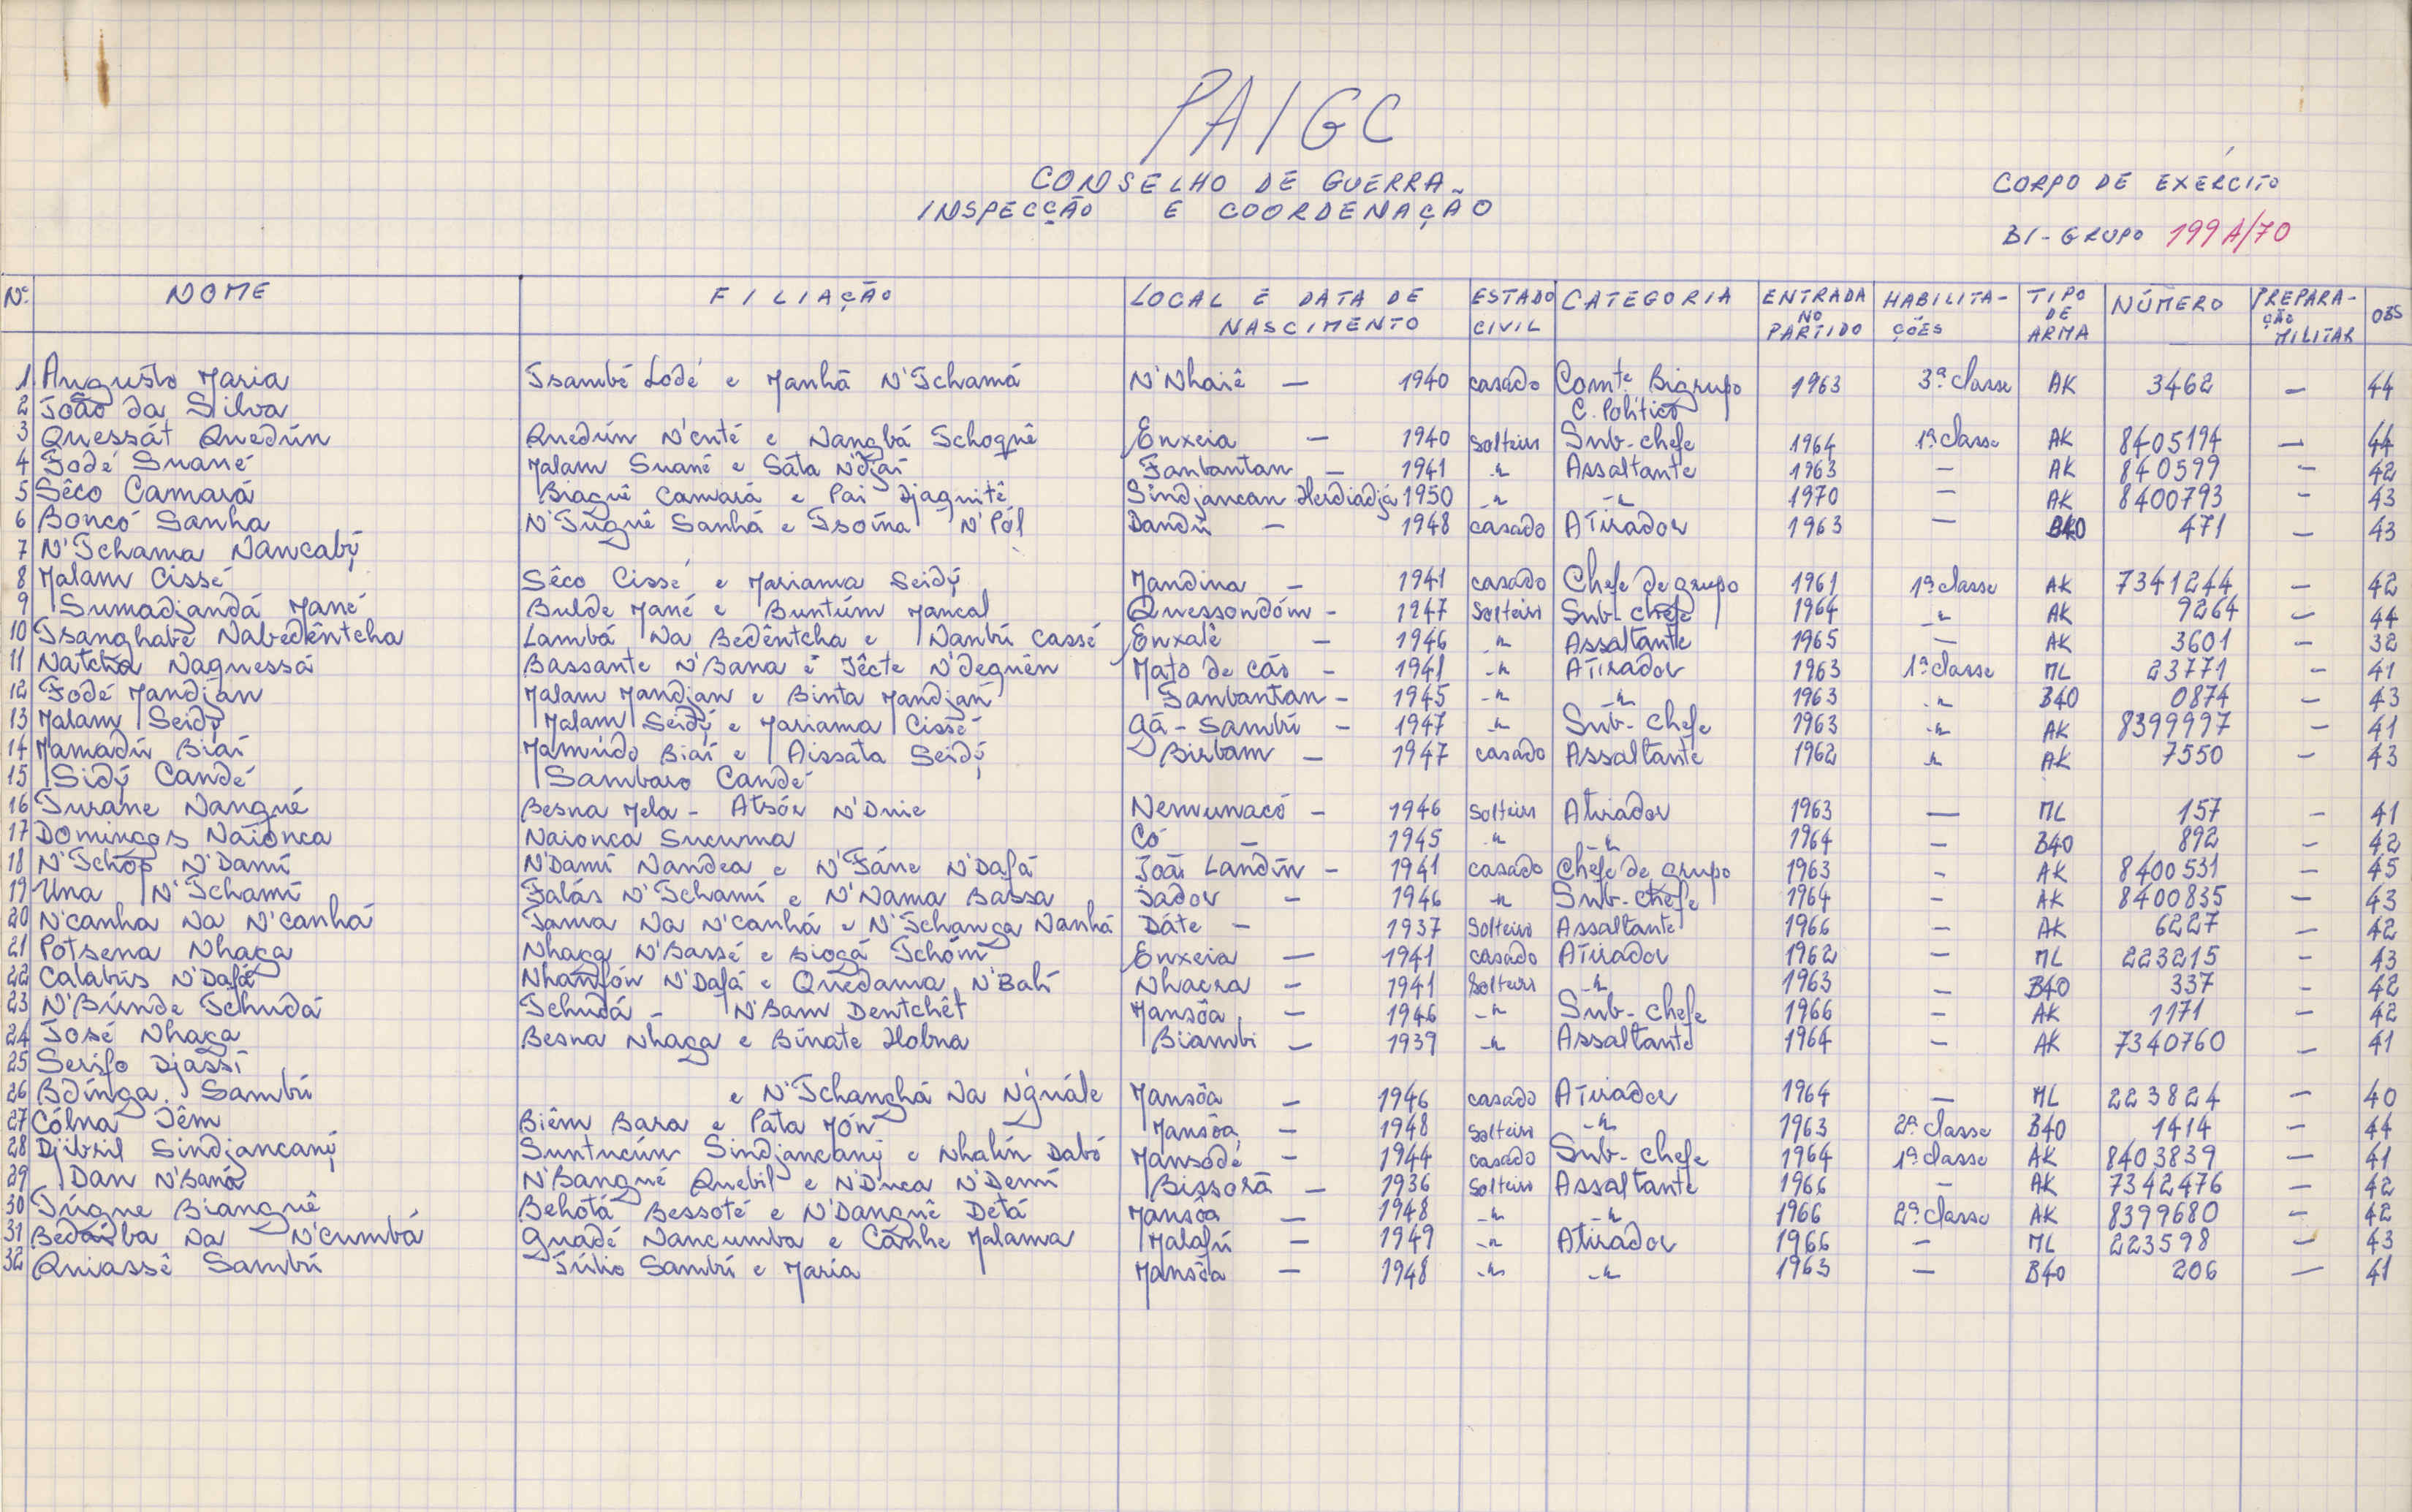 PAIGC
CONSELHO DE GUERRA
INSPECÇÃO E COORDENAÇÃO
CORPO DE EXÉRCITO
BI-GRUPO 199A/70
Nº NOME FILIAÇÃO LOCAL E DATA DE NASCIMENTO ESTADO CIVIL CATEGORIA ENTRADA NO PARTIDO HABILITAÇÕES TIPO DE ARMA NÚMERO PREPARAÇÃO MILITAR OBS
1 Augusto Maria Tsambé Lodé e Manhã N'Tchamá N'Nhaiê — 1940 casado Comte. Bigrupo 1963 3ª classe AK 3462 — 44
2 João da Silva C. Político
3 Quessát Quedún Quedún N'enté e Nangbá Tchoquê Enxeia — 1940 Solteiro Sub-chefe 1964 1ª classe AK 8405194 — 44
4 Fodé Suané Malam Suané e Sáta N'djai Fanbantan — 1941 -"- Assaltante 1963 — AK 840599 — 42
5 Sêco Camará Biaguê Camará e Pai Djaquitê Sindjancan 1950 -"- -"- 1970 — AK 8400793 - 43
6 Boncó Sanha N'Tuguê Sanhá e Tsoma N'Pól Dandú — 1948 casado Atirador 1963 — B40 471 — 43
7 N'Tchama Nancabý
8 Malam Cissé Sêco Cissé e Mariama Seidý Mandina — 1941 casado Chefe de grupo 1961 1ª classe AK 7341244 — 42
9 Sumadjandá Mané Bulde Mané e Buntúm Mancal Quessondóm - 1947 Solteiro Sub-chefe 1964 -"- AK 9264 — 44
10 Tsanghabé Nabedêntcha Lambá Na Bedêntcha e Nanbú Cassé Enxalê - 1946 -"- Assaltante 1965 — AK 3601 - 32
11 Natcha Naquessá Bassante N'Bana e Têcte N'dequên Mato de cão - 1941 -"- Atirador 1963 1ª classe ML 23771 - 41
12 Fodé Mandjan Malam Mandjan e Binta Mandjan Fanbantan - 1945 -"- -"- 1963 -"- B40 0874 — 43
13 Malam Seidý Malam Seidý e Mariama Cissé Gã-Sambú - 1947 -"- Sub-chefe 1963 -"- AK 8399997 - 41
14 Mamadú Biai Mamúdo Biai e Aissáta Seidý Birbam — 1947 casado Assaltante 1962 -"- AK 7550 — 43
15 Sidý Candé Sambaro Candé
16 Turáne Nangué Besna Mela - Atsór N'Dnie Nemunacó - 1946 Solteiro Atirador 1963 — ML 157 - 41
17 Domingos Naionca Naionca Sucuma Có — 1945 -"- -"- 1964 — B40 892 — 42
18 N'Tchóp N'Dami N'Dami Nandea e N'Fáne N'Dafá João Landín - 1941 casado Chefe de grupo 1963 - AK 8400531 — 45
19 Una N'Tchami Falás N'Tchami e N'Nama Bassa Jador - 1946 -"- Sub-chefe 1964 - AK 8400835 — 43
20 N'canha Na N'canhá Tama Na N'canhá e N'Tchanga Nanhá Dáte — 1937 Solteiro Assaltante 1966 - AK 6227 — 42
21 Potsena Nhaga Nhaga N'Bassé e Biogá Tchóm Enxeia — 1941 casado Atirador 1962 — ML 223215 — 43
22 Calabús N'Dafá Nhanfór N'Dafá e Quedama N'Bali Nhacra — 1941 Solteiro -"- 1963 — B40 337 — 42
23 N'Búnde Tchudá Tchudá - N'Bam Dentchêt Mansôa — 1946 -"- Sub-chefe 1966 — AK 1171 — 42
24 José Nhaga Besna Nhaga e Bínate Hobna Biambi — 1939 -"- Assaltante 1964 — AK 7340760 — 41
25 Serifo Djassi
26 Bdínga Sambú e N'Tchanghá Na N'guále Mansôa — 1946 casado Atirador 1964 — ML 223824 — 40
27 Cólna Têm Biêm Bara e Páta Món Mansôa — 1948 Solteiro -"- 1963 2ª classe B40 1414 — 44
28 Djibril Sindjancaný Suntucún Sindjancaný e Nhalín Dabó Mansodé — 1944 casado Sub-chefe 1964 1ª classe AK 8403839 — 41
29 Dan N'Baná N'Bangué Quebil e N'Duca N'Demi Bissorã — 1936 Solteiro Assaltante 1966 - AK 7342476 — 42
30 Túgne Bianguê Behotá Bessoté e N'Danguê Detá Mansôa — 1948 -"- -"- 1966 2ª classe AK 8399680 — 42
31 Na N'cumbá Guadé Nancumba e Cánhe Malama Malafú — 1949 -"- Atirador 1966 — ML 223598 — 43
32 Quiassê Sambú Túlio Sambú e Maria Mansôa — 1948 -"- -"- 1963 — B40 206 — 41